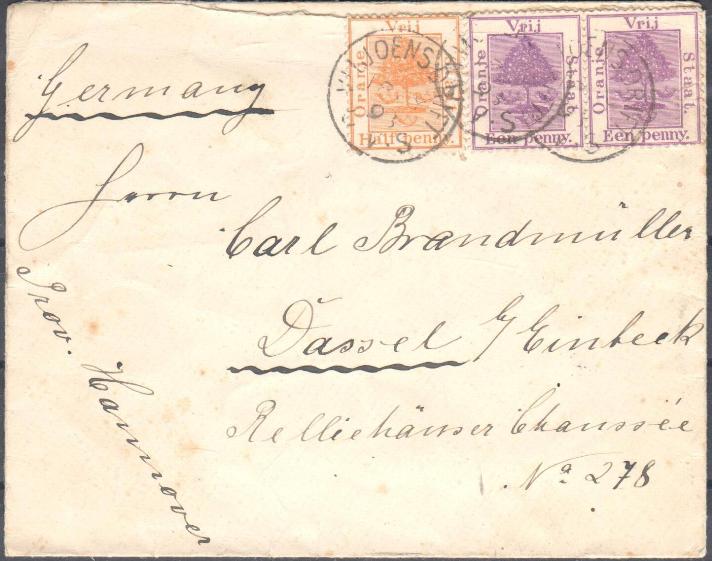 Germany
Vrij
Oranje
Half penny.
Vrij
Oranje Staat.
Een penny.
Vrij
Oranje Staat.
Een penny.
VILJOENSDRIFT
Herrn
Carl Brandmüller
Dassel b/ Einbeck
Relliehäuser Chaussée
No 278
Prov. Hannover